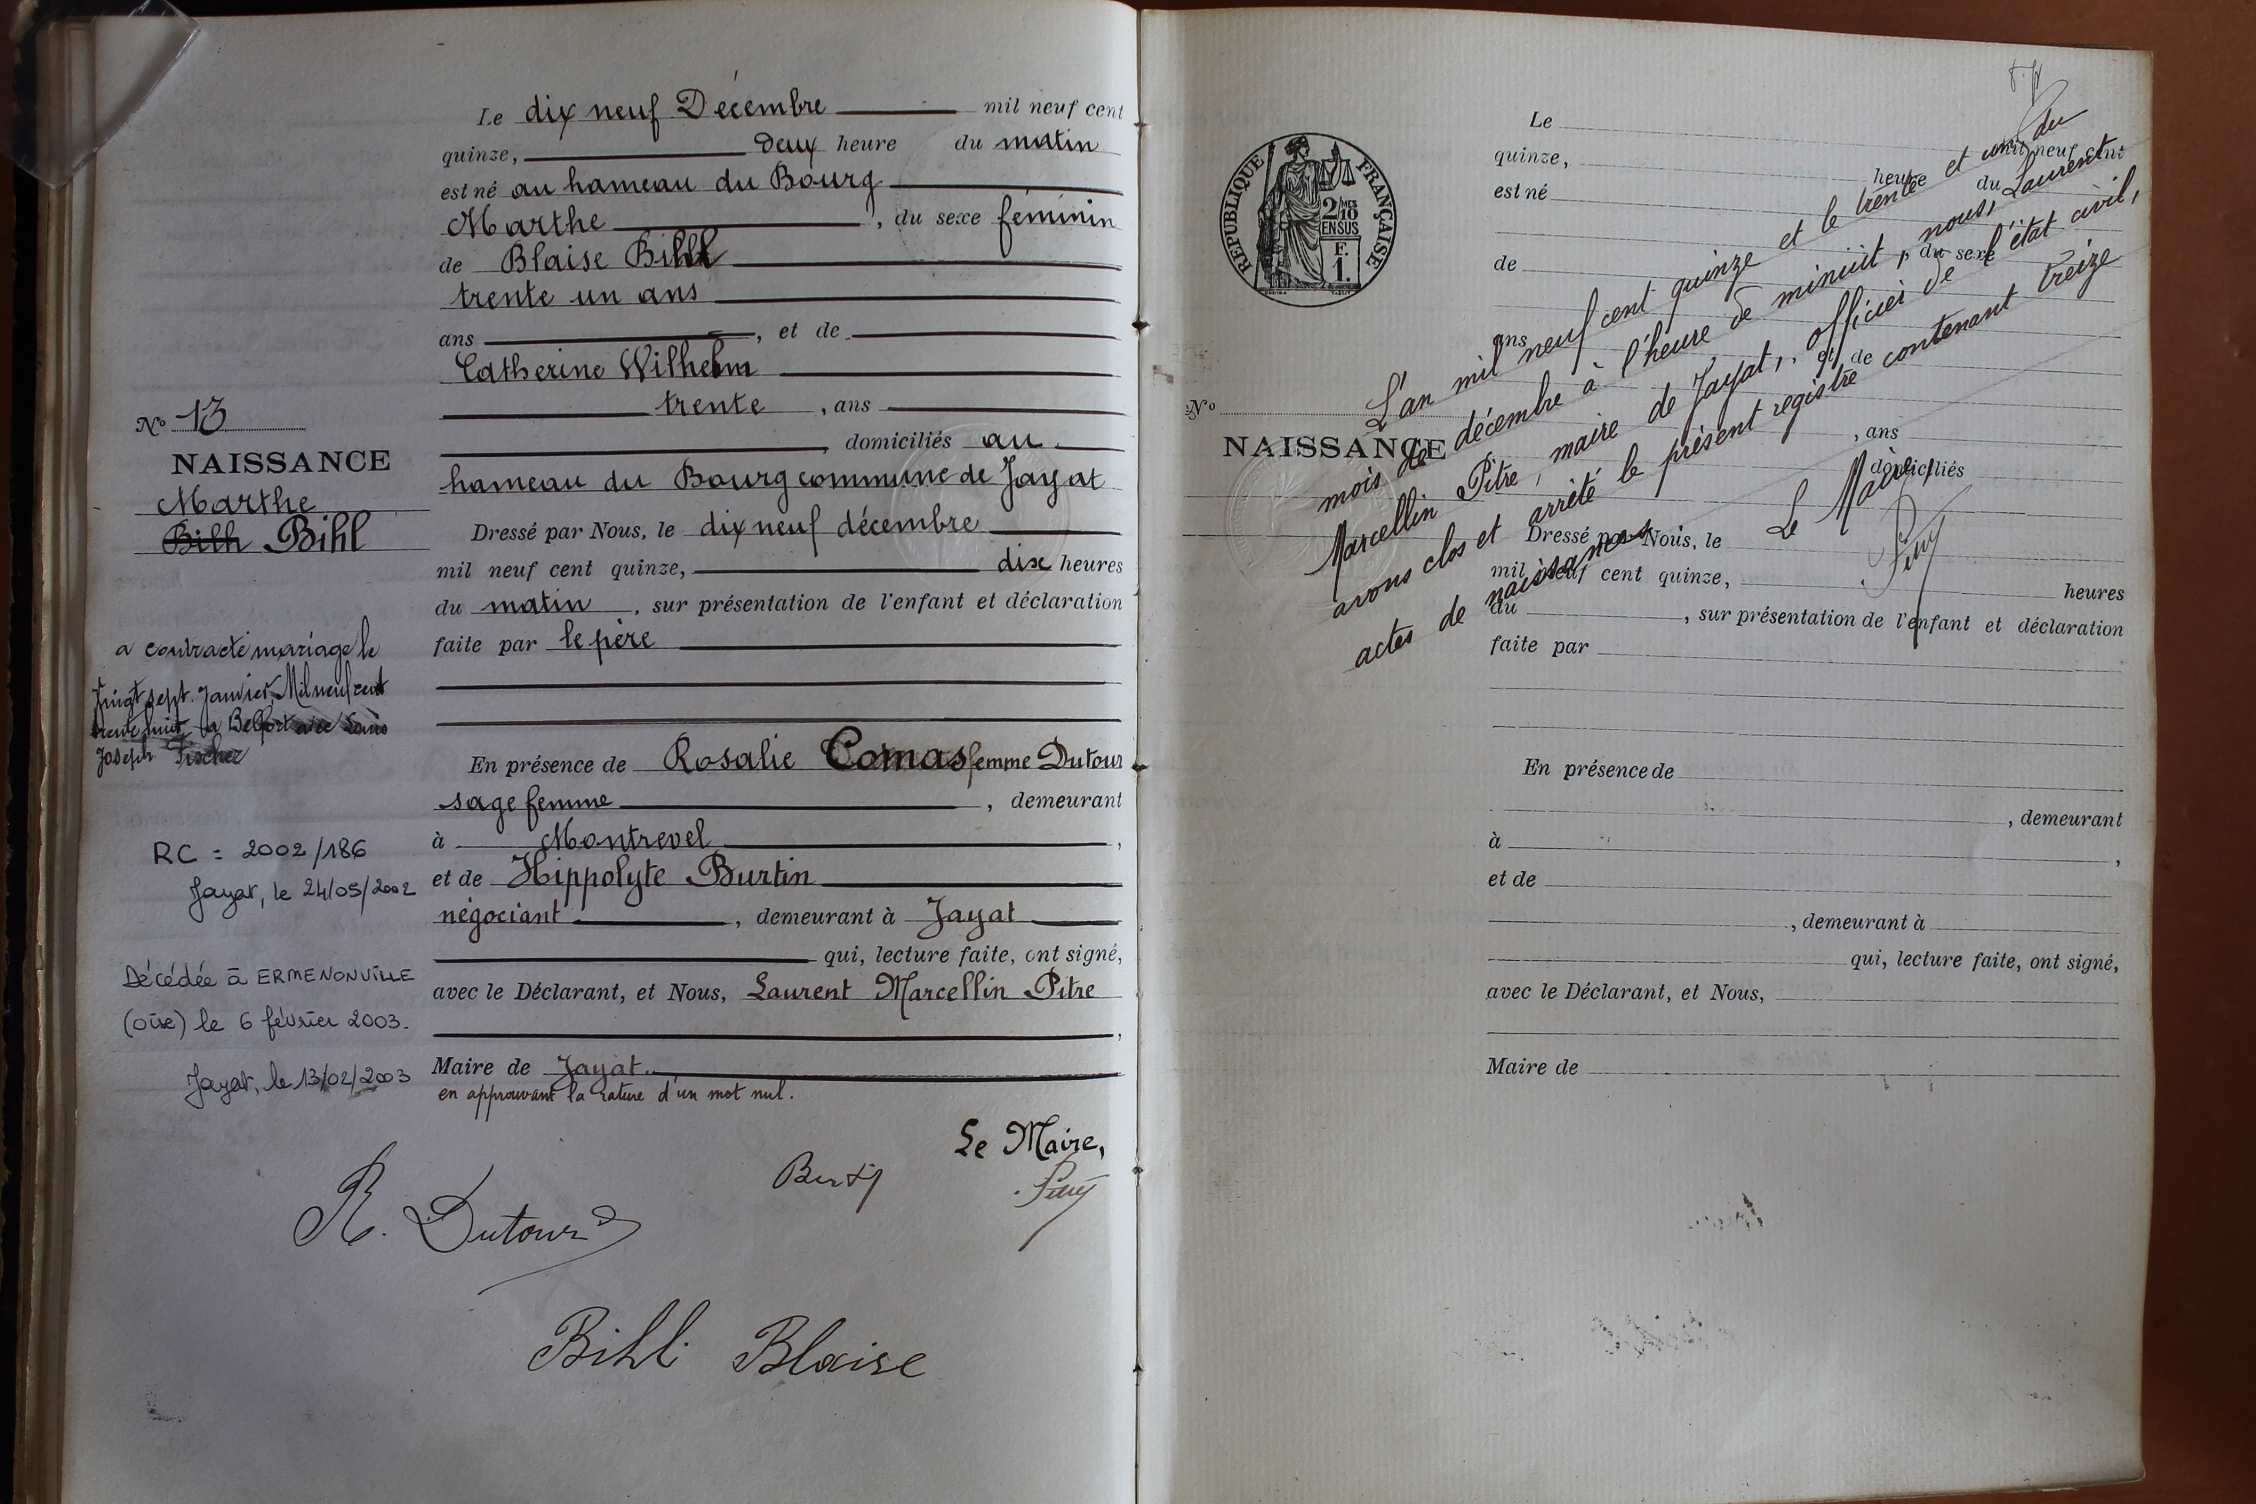 Le dix neuf Décembre mil neuf cent
quinze, deux heure du matin
est né au hameau du Bourg
Marthe, du sexe féminin
de Blaise Bihl
trente un ans
ans, et de
Catherine Wilhelm
trente, ans
domiciliés au
hameau du Bourg commune de Jayat
Dressé par Nous, le dix neuf décembre
mil neuf cent quinze, dix heures
du matin, sur présentation de l'enfant et déclaration
faite par le père
En présence de Rosalie Comas femme Dutour
sage femme, demeurant
à Montrevel,
et de Hippolyte Burtin
négociant, demeurant à Jayat
qui, lecture faite, ont signé,
avec le Déclarant, et Nous, Laurent Marcellin Pitre
,
Maire de Jayat.
en approuvant la rature d'un mot nul.
Le Maire,
R. Dutour
Bihl Blaise
No 13
NAISSANCE
Marthe
Bilh Bihl
a contracté mariage le
vingt sept Janvier Mil neuf cent
trente huit à Belfort avec Louis
Joseph Fischer
RC = 2002/186
Jayat, le 24/05/2002
Décédée à ERMENONVILLE
(oise) le 6 février 2003.
Jayat, le 13/02/2003
REPUBLIQUE FRANÇAISE
2/MES
10
EN SUS
F.
1.
No
NAISSANCE
Le
mil neuf cent
quinze, heure du
est né
, du sexe
de
ans, et de
, ans
domiciliés
Dressé par Nous, le
mil neuf cent quinze, heures
du, sur présentation de l'enfant et déclaration
faite par
En présence de
, demeurant
à,
et de
, demeurant à
qui, lecture faite, ont signé,
avec le Déclarant, et Nous,
Maire de
L'an mil neuf cent quinze et le trente et un du
mois de décembre à l'heure de minuit, nous, Laurent
Marcellin Pitre, maire de Jayat, officier de l'état civil,
avons clos et arrêté le présent registre contenant treize
actes de naissances
Le Maire,